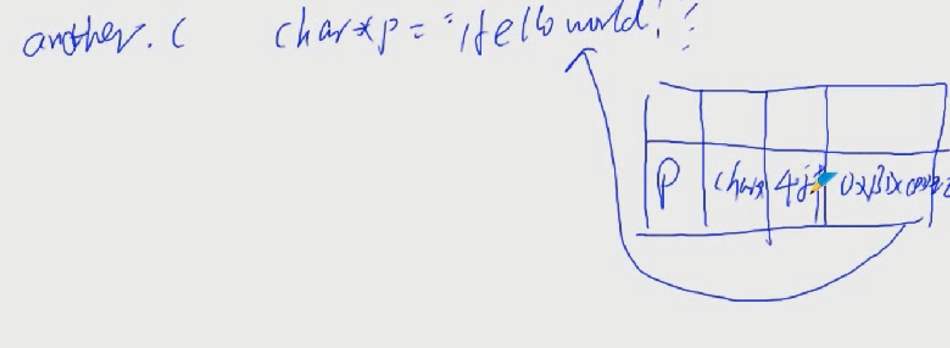 another.c char*p = "Hello world";
P char* 4字节